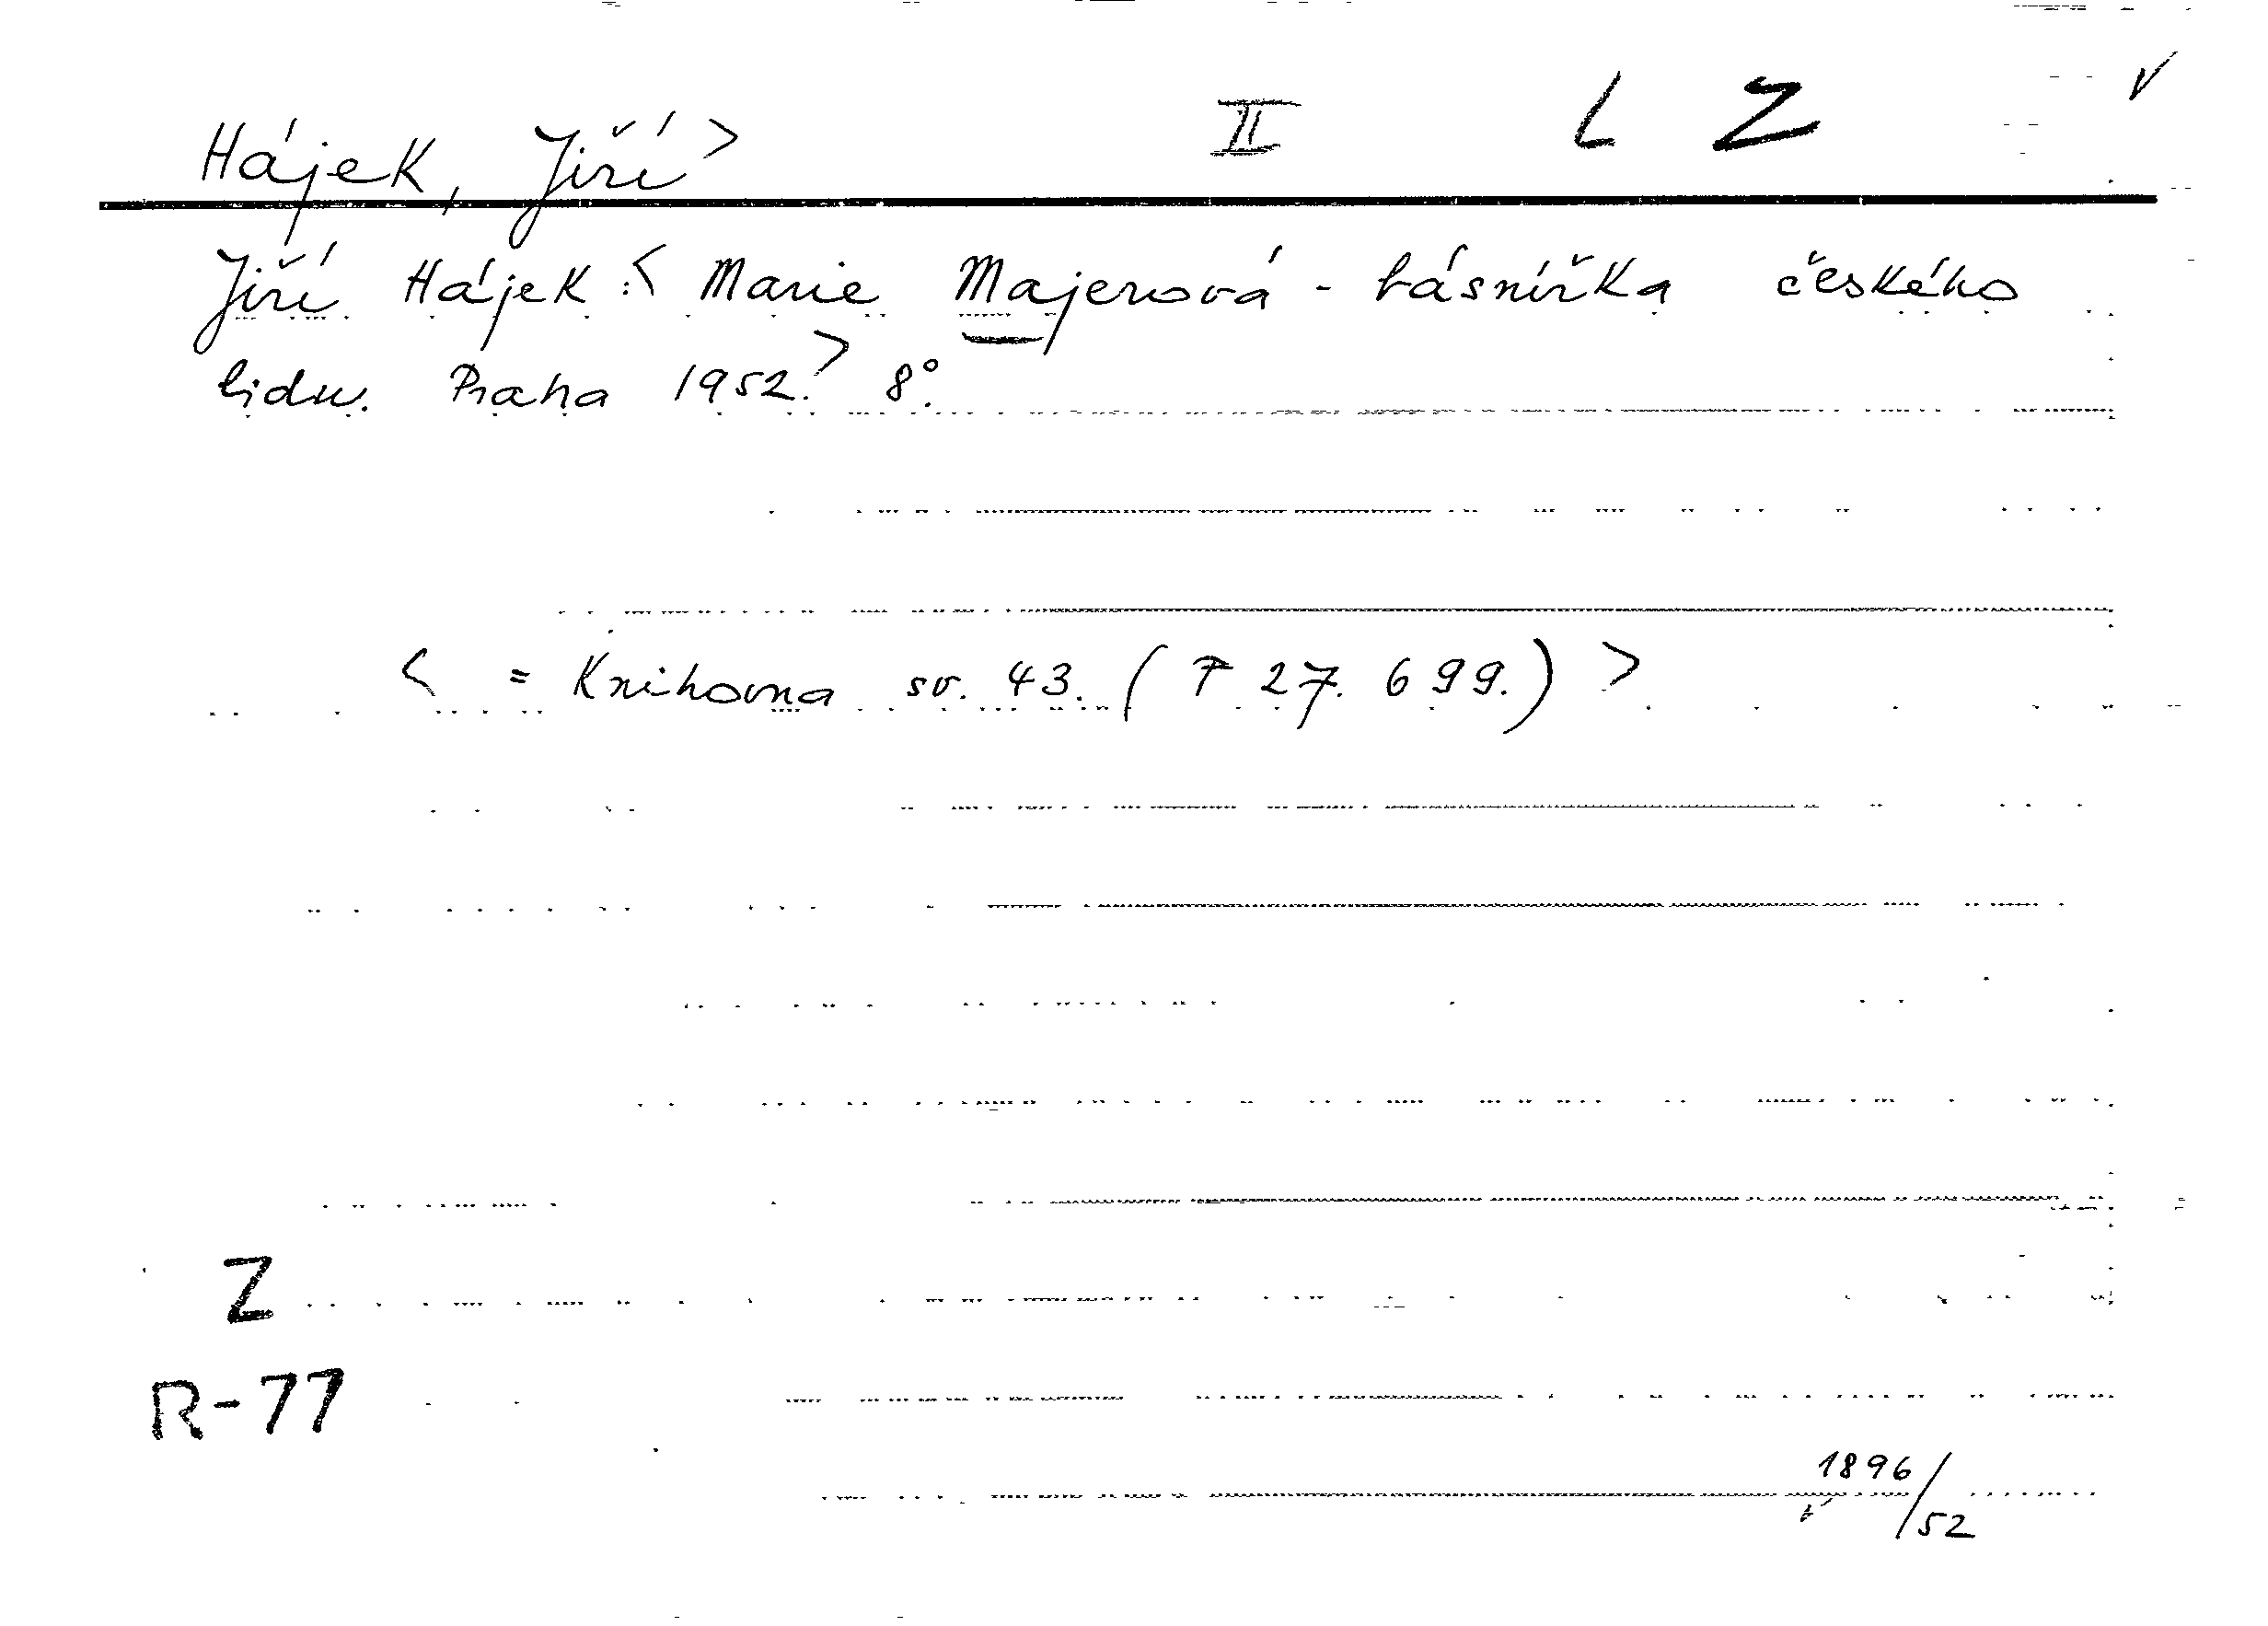 Hájek, Jiří > II L Z
Jiří Hájek :< Marie Majerová - básnířka českého
lidu. Praha 1952.> 8°.
< = Knihovna sv. 43. ( T 27. 699.) >
Z
R-77
1896/52